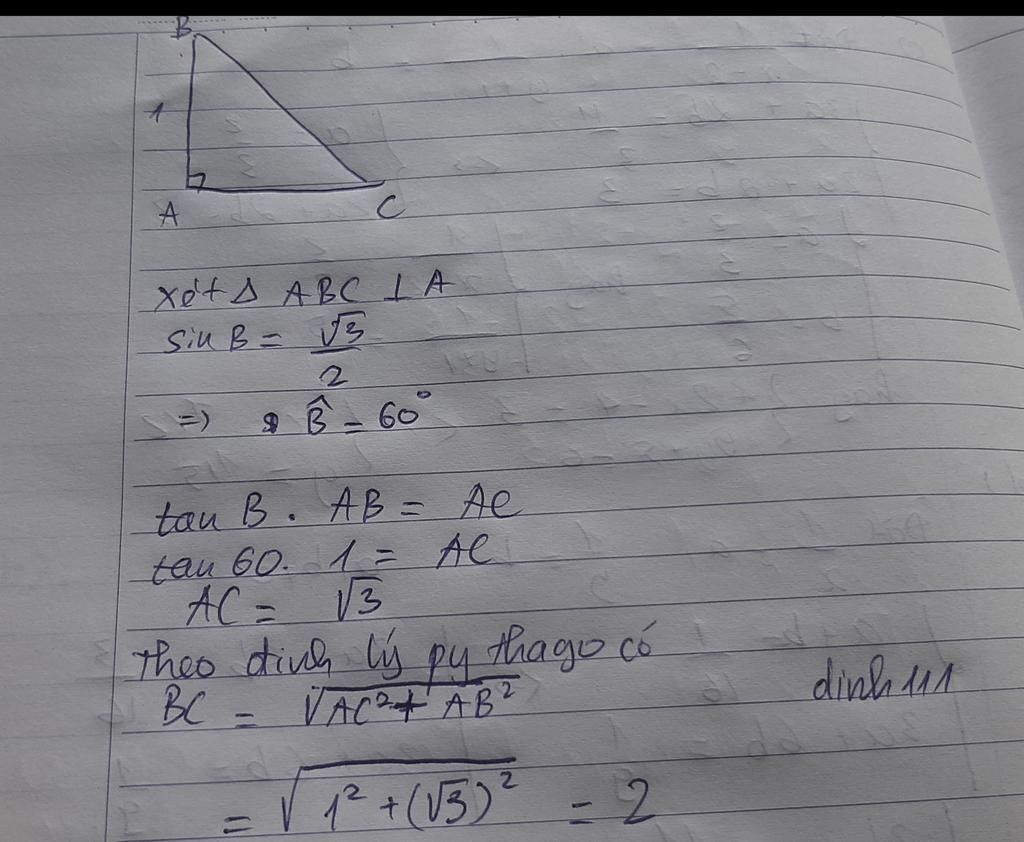 B
1
A
C
xét Δ ABC ⊥ A
sin B = √3/2
=> B̂ = 60°
tan B . AB = AC
tan 60. 1 = AC
AC = √3
theo định lý py thago có
BC = √AC² + AB²
dinh 111
= √1² + (√3)² = 2